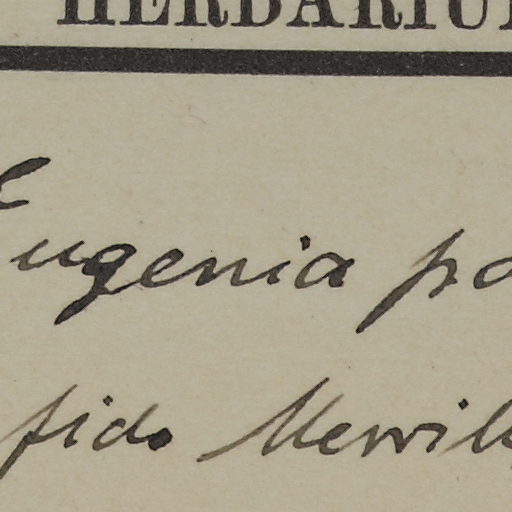 HERBARIU
Eugenia pa
fide Merrill